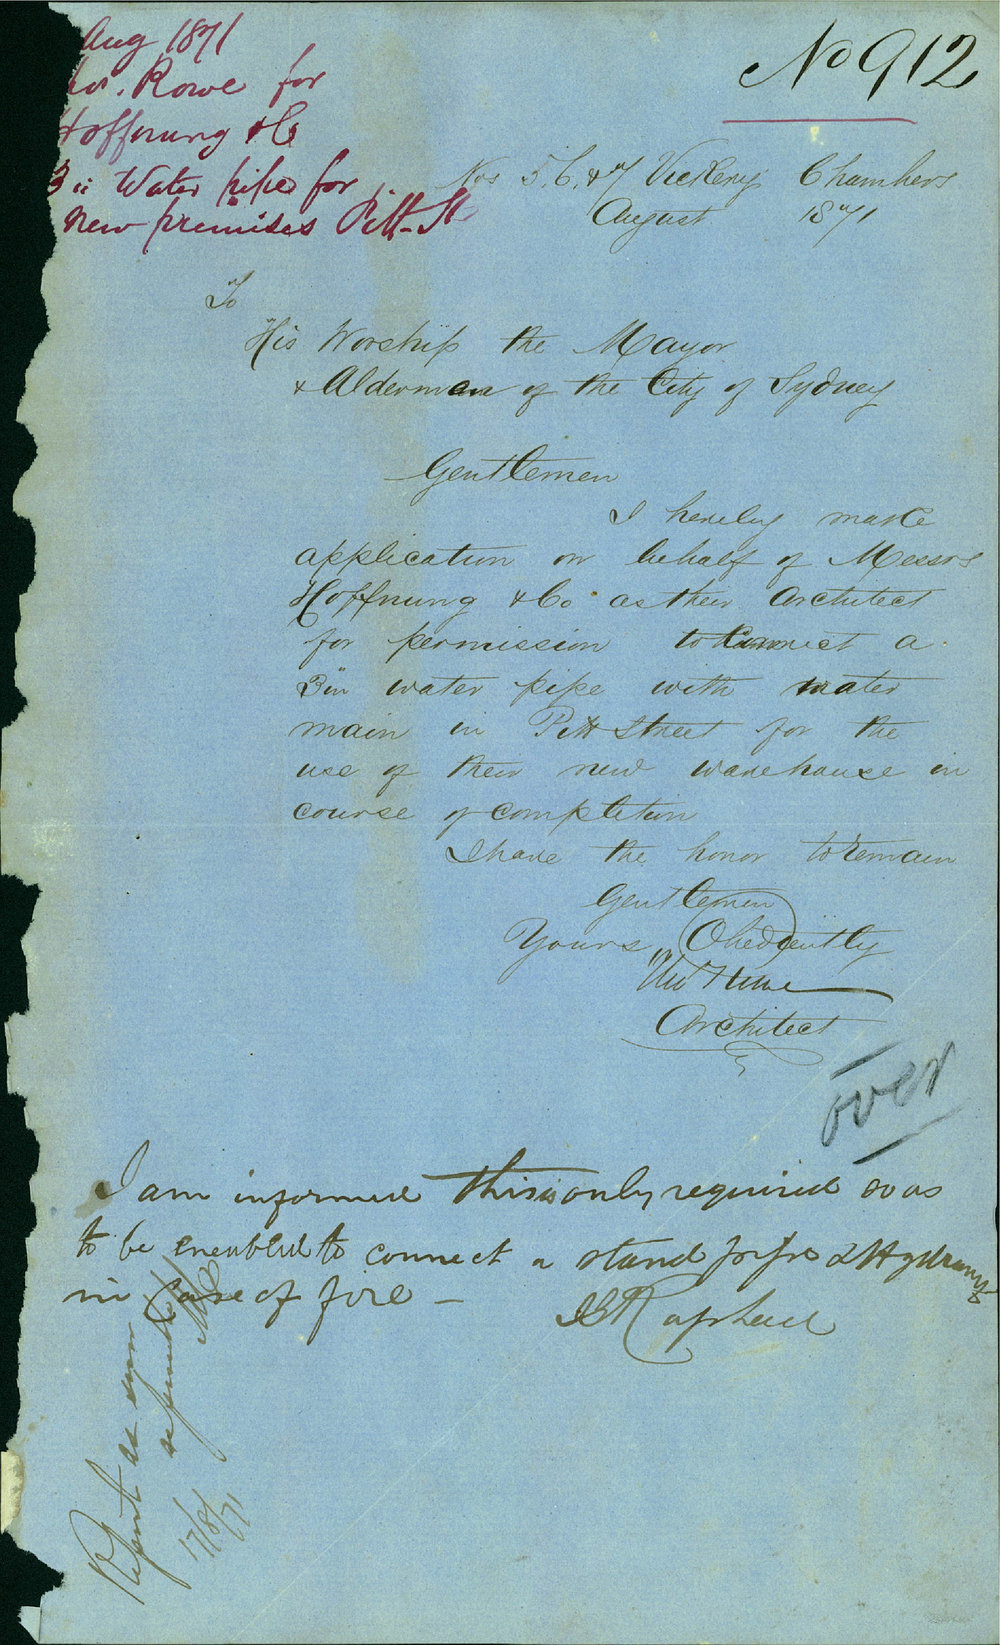 Aug 1871
Rowe for
Hoffnung & Co
3 in Water pipe for
new premises Pitt St
No 912
Nos 5. 6. & 7 Vickery's Chambers
August 1871
To
His Worship the Mayor
& Alderman of the City of Sydney
Gentlemen
I hereby make
application on behalf of Messrs
Hoffnung & Co as their Architect
for permission to connect a
3 in water pipe with water
main in Pitt Street for the
use of their new warehouse in
course of completion
I have the honor to remain
Gentlemen
Yours Obediently
Thos Rowe
Architect
over
I am informed this is only required so as
to be eneabled to connect a stand pipe & Hydrant
in Case of fire —
J G Raphael
Report as soon
17/8/71